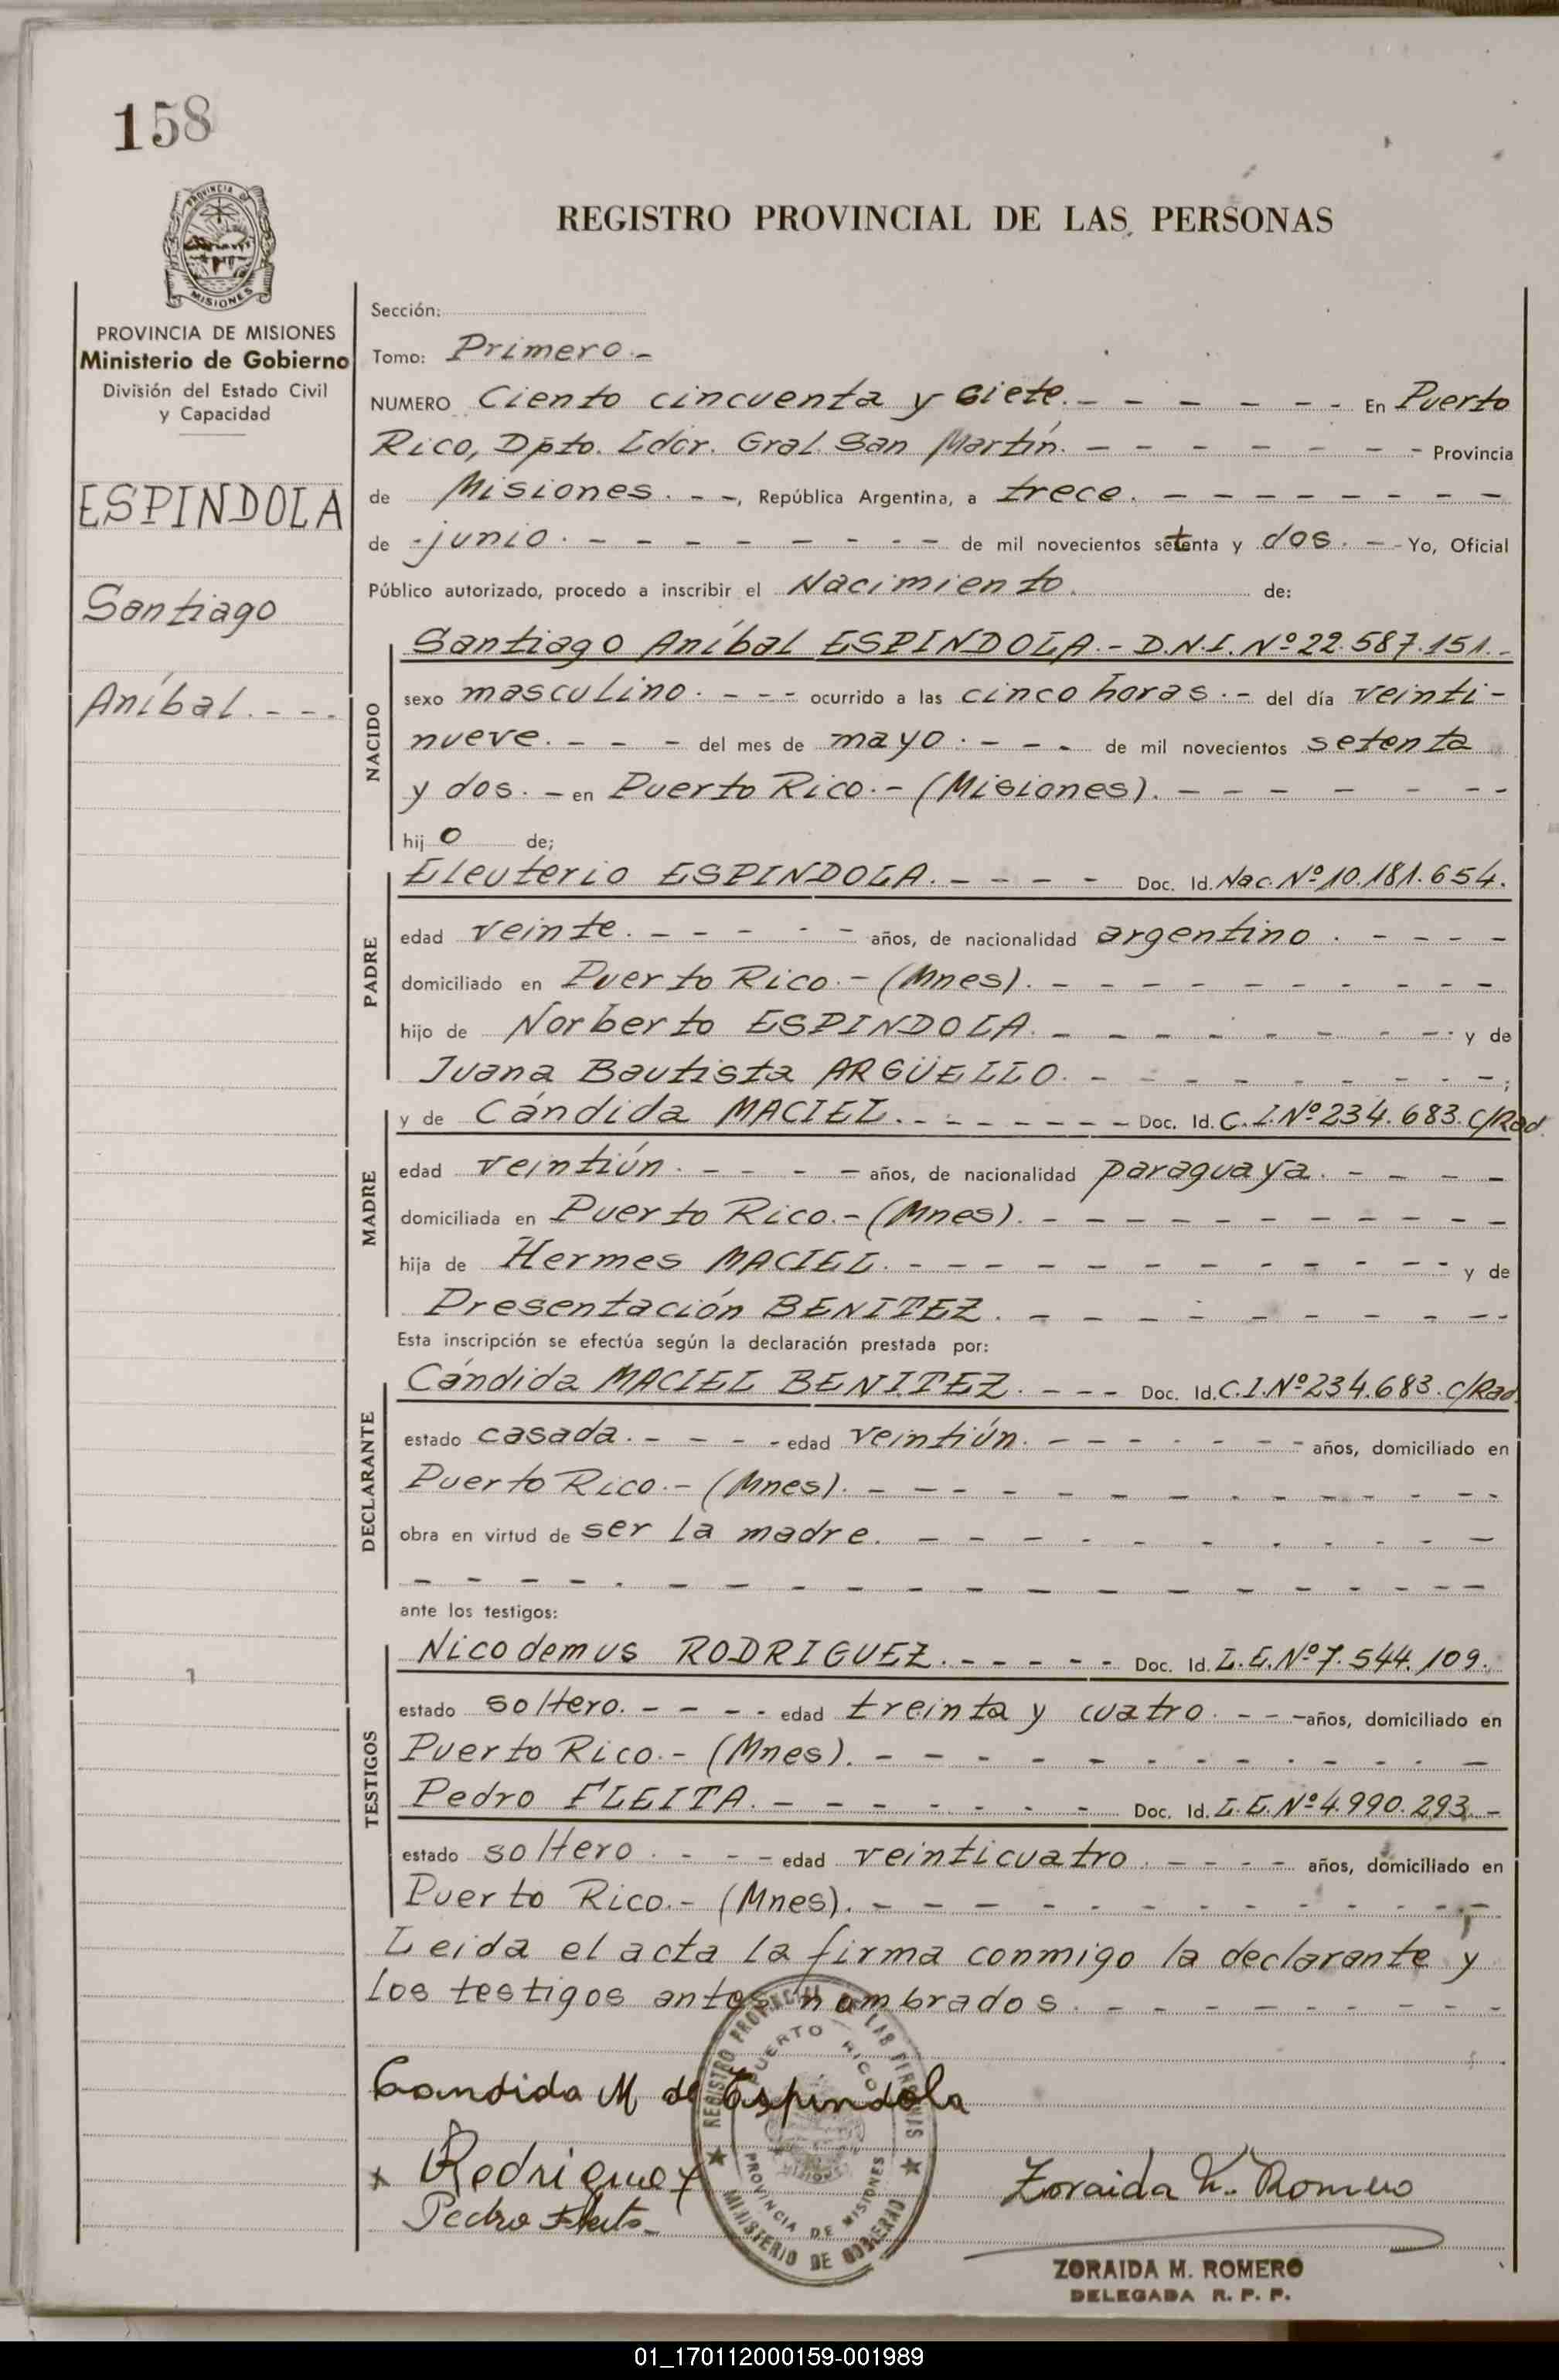 158
PROVINCIA
MISIONES
REGISTRO PROVINCIAL DE LAS PERSONAS
PROVINCIA DE MISIONES
Ministerio de Gobierno
División del Estado Civil
y Capacidad
ESPINDOLA
Santiago
Aníbal.---.
Sección:
Tomo: Primero.-
NUMERO Ciento cincuenta y siete.- - - - - - En Puerto
Rico, Dpto. Ldor. Gral. San Martín. - - - - - - - Provincia
de Misiones. - -, República Argentina, a trece. - - - - - - - -
de -junio. - - - - - - - - de mil novecientos setenta y dos. - - Yo, Oficial
Público autorizado, procedo a inscribir el Nacimiento. de:
NACIDO
Santiago Aníbal ESPINDOLA.- D.N.I. Nº 22.587.151.-
sexo masculino. - - - ocurrido a las cinco horas.- del día veinti-
nueve. - - - del mes de mayo. - - - de mil novecientos setenta
y dos. - en Puerto Rico.- (Misiones). - - - - - - -
hij o de;
PADRE
Eleuterio ESPINDOLA. - - - - Doc. Id. Nac. Nº 10.181.654.
edad veinte. - - - - - años, de nacionalidad argentino. - - - -
domiciliado en Puerto Rico.- (Mnes). - - - - - - - - - -
hijo de Norberto ESPINDOLA. - - - - - - - - y de
Juana Bautista ARGÜELLO. - - - - - - - - -;
MADRE
y de Cándida MACIEL. - - - - - - - Doc. Id. C.I. Nº 234.683. C/Rad.
edad veintiún. - - - - años, de nacionalidad paraguaya. - - - -
domiciliada en Puerto Rico.- (Mnes). - - - - - - - - - -
hija de Hermes MACIEL. - - - - - - - - - - y de
Presentación BENITEZ. - - - - - - - - -
Esta inscripción se efectúa según la declaración prestada por:
DECLARANTE
Cándida MACIEL BENITEZ. - - - Doc. Id. C.I. Nº 234.683. C/Rad.
estado casada. - - - - edad veintiún. - - - - - - - años, domiciliado en
Puerto Rico.- (Mnes). - - - - - - - - - - - -
obra en virtud de ser la madre. - - - - - - - - - -
- - - - - - - - - - - - - - - - - -
ante los testigos:
TESTIGOS
Nicodemus RODRIGUEZ. - - - - - Doc. Id. L.E. Nº 7.544.109.
estado soltero. - - - - edad treinta y cuatro. - - - años, domiciliado en
Puerto Rico.- (Mnes). - - - - - - - - - - - -
Pedro FLEITA. - - - - - - - Doc. Id. L.E. Nº 4.990.293.-
estado soltero. - - - edad veinticuatro. - - - - años, domiciliado en
Puerto Rico.- (Mnes). - - - - - - - - - - - -
Leida el acta la firma conmigo la declarante y
los testigos antes nombrados. - - - - - - - - -
Candida M de Espindola
REGISTRO PROVINCIAL DE LAS PERSONAS
PUERTO RICO
PROVINCIA DE MISIONES
MINISTERIO DE GOBIERNO
x Rodriguez
Pedro Fleita
Zoraida M. Romero
ZORAIDA M. ROMERO
DELEGADA R. P. P.
01_170112000159-001989